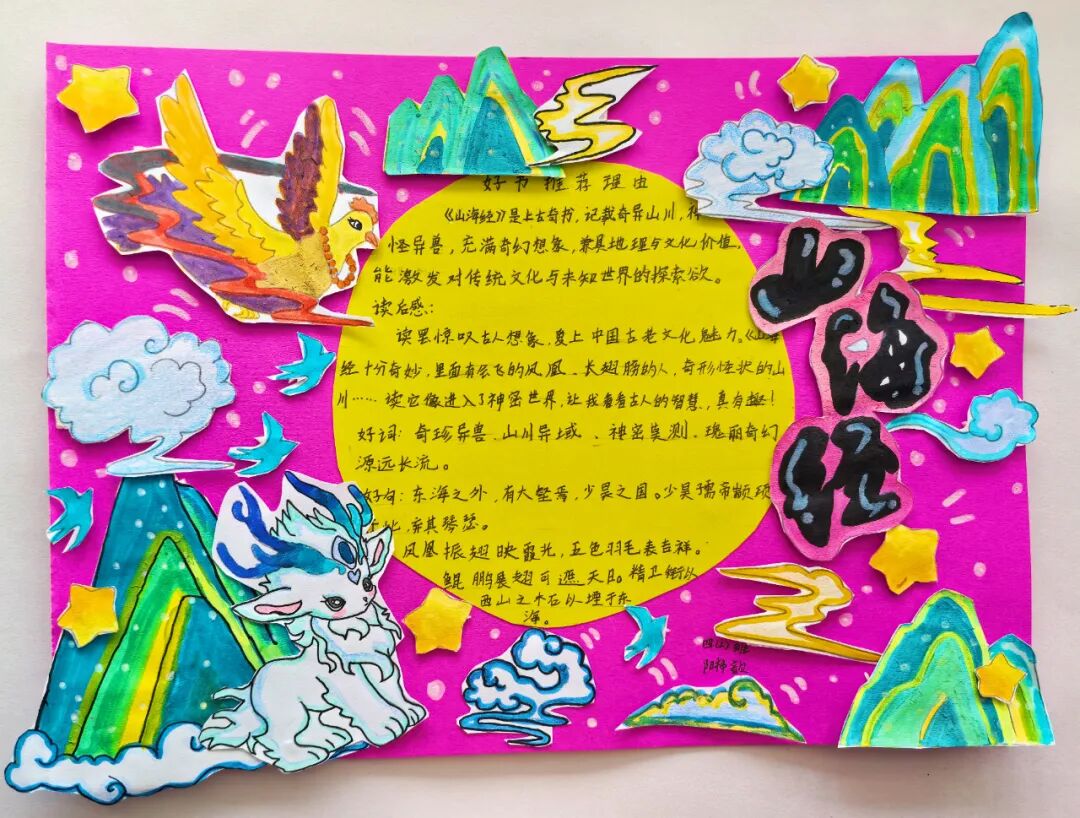 好书推荐理由
《山海经》是上古奇书，记载奇异山川，神
怪异兽，充满奇幻想象，兼具地理与文化价值，
能激发对传统文化与未知世界的探索欲。
读后感：
读罢惊叹古人想象，爱上中国古老文化魅力。《山海
经十分奇妙，里面有会飞的凤凰、长翅膀的人，奇形怪状的山
川……读它像进入了神密世界，让我看看古人的智慧，真有趣！
好词：奇珍异兽、山川异域、神密莫测、瑰丽奇幻
源远长流。
好句：东海之外，有大壑焉，少昊之国。少昊孺帝颛顼
于此，弃其琴瑟。
凤凰振翅映霞光，五色羽毛表吉祥。
鲲鹏展翅可遮天日。精卫衔以
西山之木石以堙于东
海。
山海经